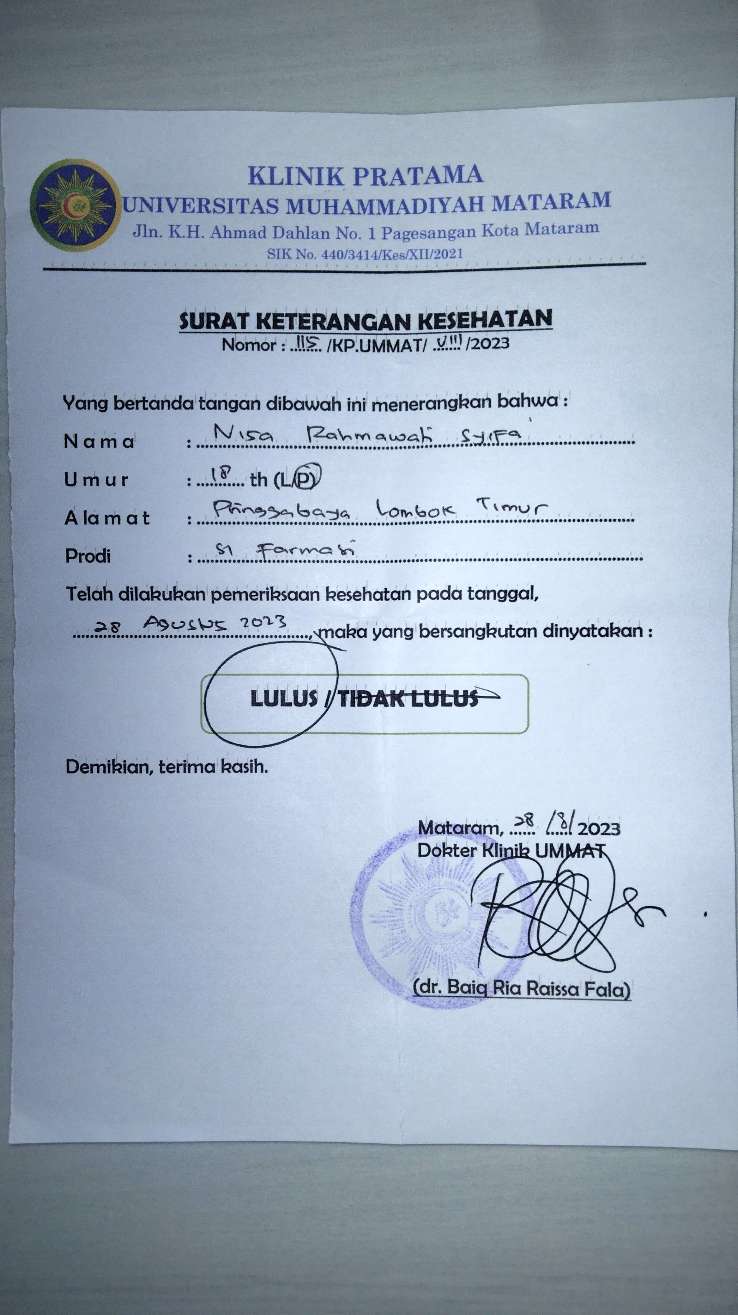 KLINIK PRATAMA
UNIVERSITAS MUHAMMADIYAH MATARAM
Jln. K.H. Ahmad Dahlan No. 1 Pagesangan Kota Mataram
SIK No. 440/3414/Kes/XII/2021
SURAT KETERANGAN KESEHATAN
Nomor : 115 /KP.UMMAT/ VIII /2023
Yang bertanda tangan dibawah ini menerangkan bahwa :
Nama : Nisa Rahmawati Syifa
Umur : 18 th (L/P)
Alamat : Pringgabaya Lombok Timur
Prodi : S1 Farmasi
Telah dilakukan pemeriksaan kesehatan pada tanggal,
28 Agustus 2023, maka yang bersangkutan dinyatakan :
LULUS / TIDAK LULUS
Demikian, terima kasih.
Mataram, 28 /8/ 2023
Dokter Klinik UMMAT
(dr. Baiq Ria Raissa Fala)